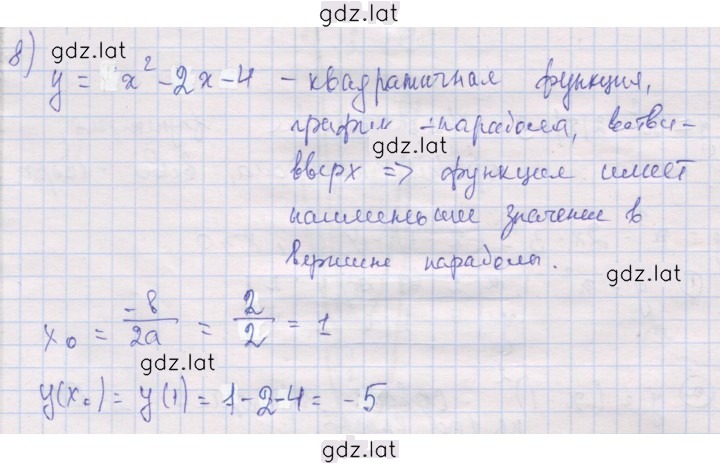 gdz.lat
8) gdz.lat
y = x² - 2x - 4 - квадратичная функция,
график - парабола, ветви -
gdz.lat
вверх => функция имеет
наименьшее значение в
вершине параболы.
gdz.lat
x₀ = -b/2a = 2/2 = 1
gdz.lat
y(x₀) = y(1) = 1-2-4 = -5
gdz.lat